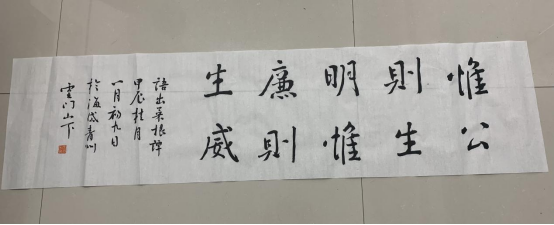 惟公
則生
明惟
廉則
生威
語出菜根譚
甲辰桂月
月初九日
於海岱青州
雲门山下